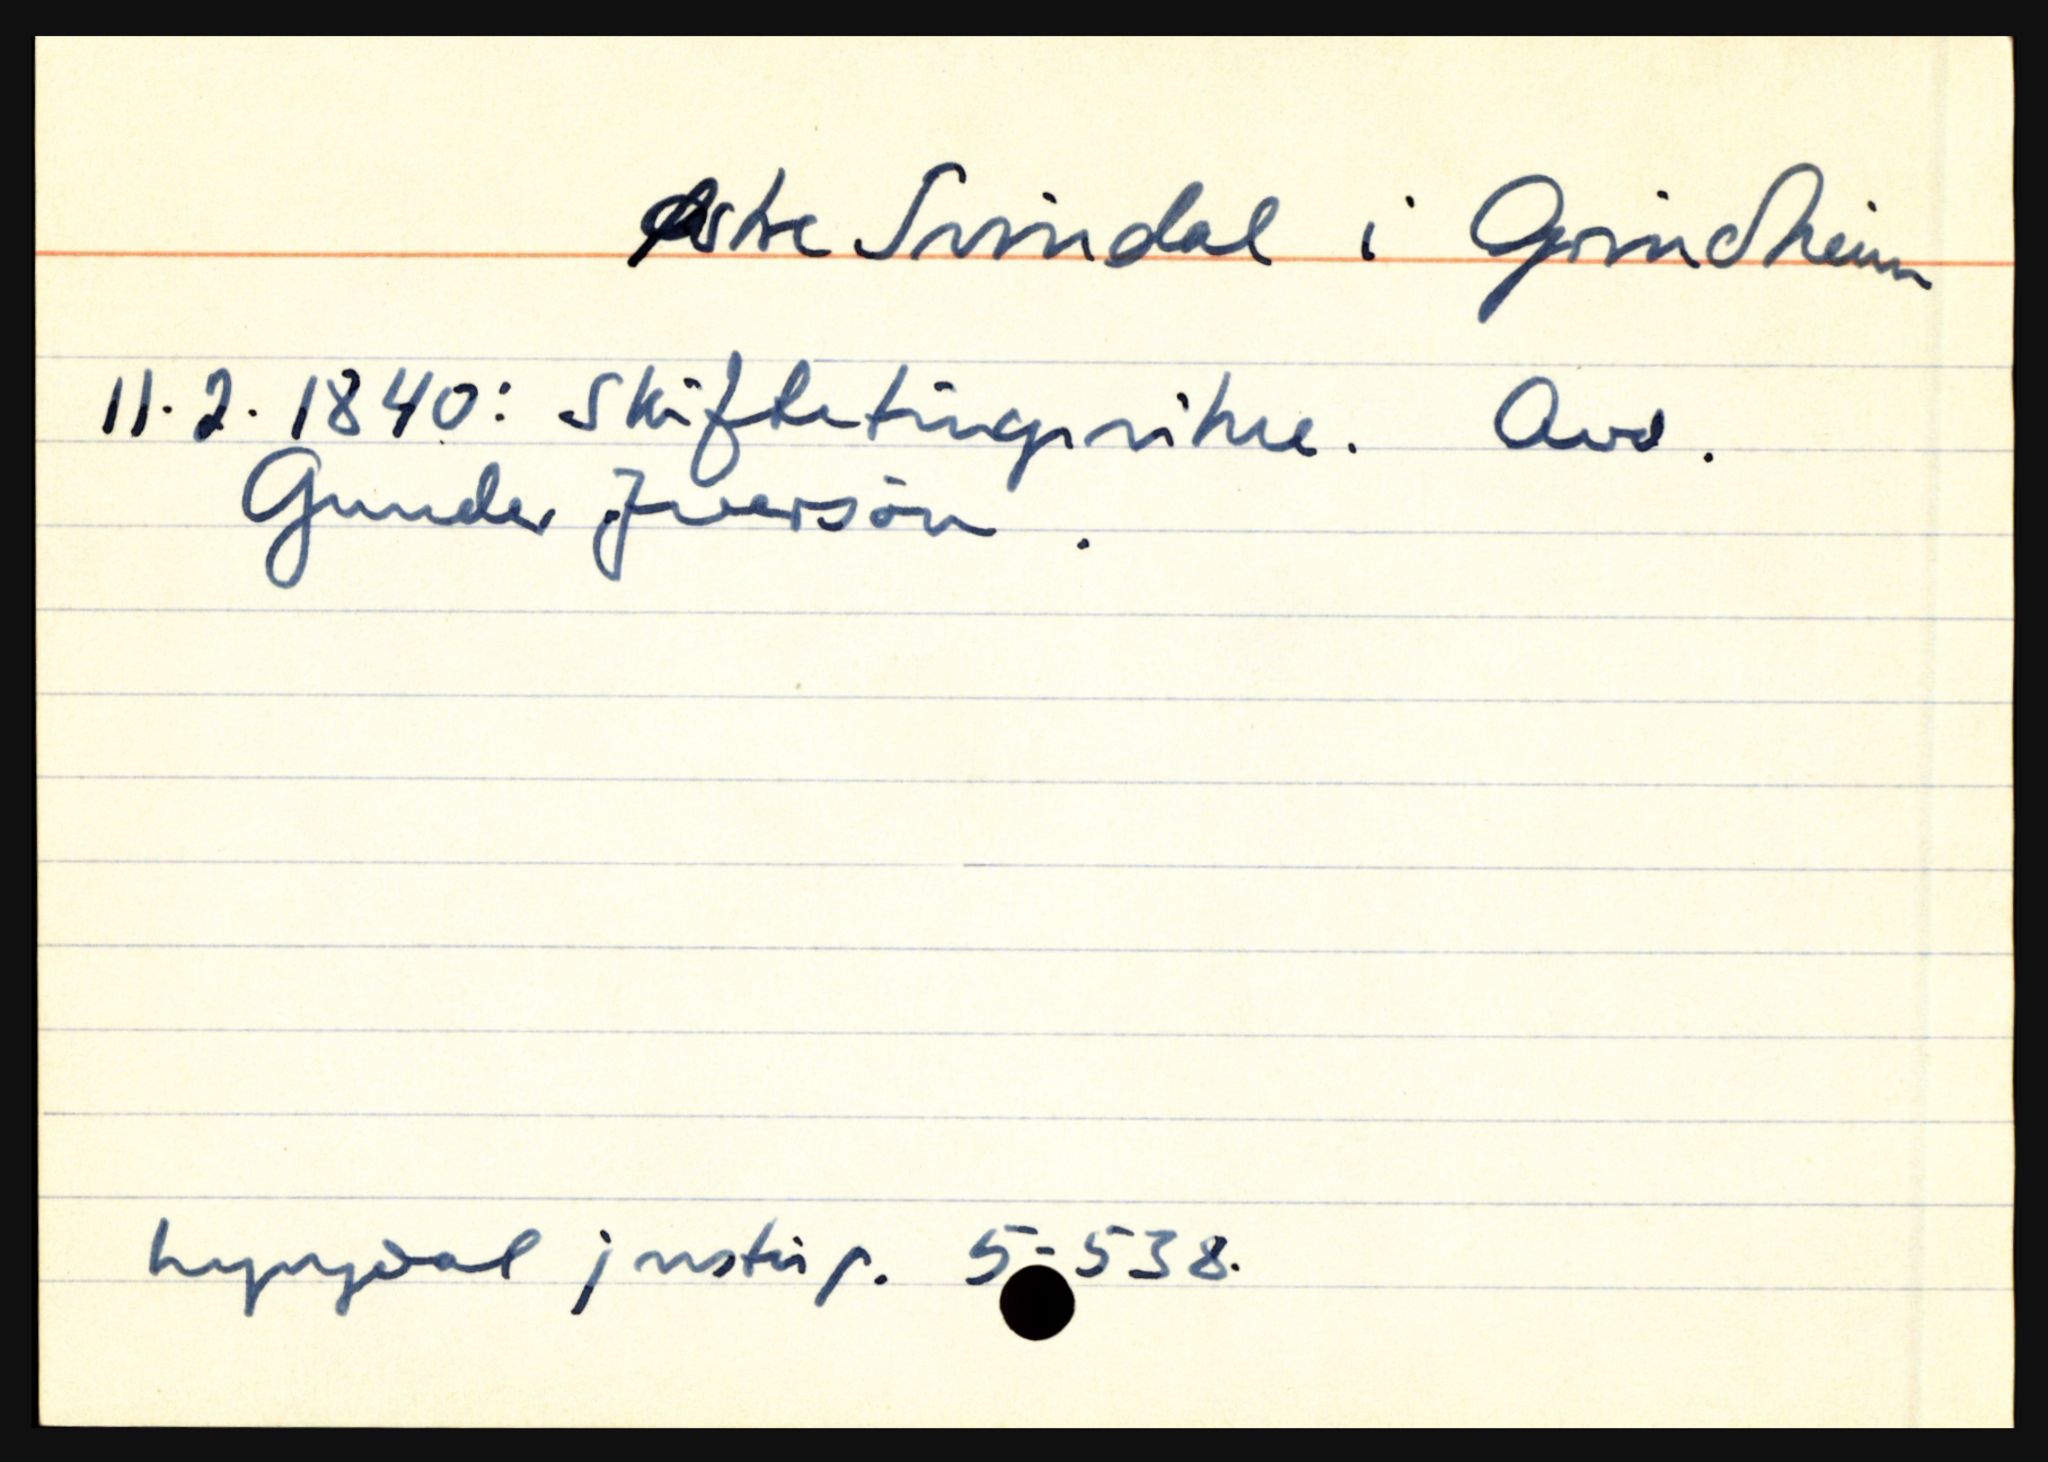 Østre Svindal i Grindheim
11.2. 1840: Skiftetingsvitne. Avd.
Gunder Iversøn.
Lyngdal justisp. 5-538.